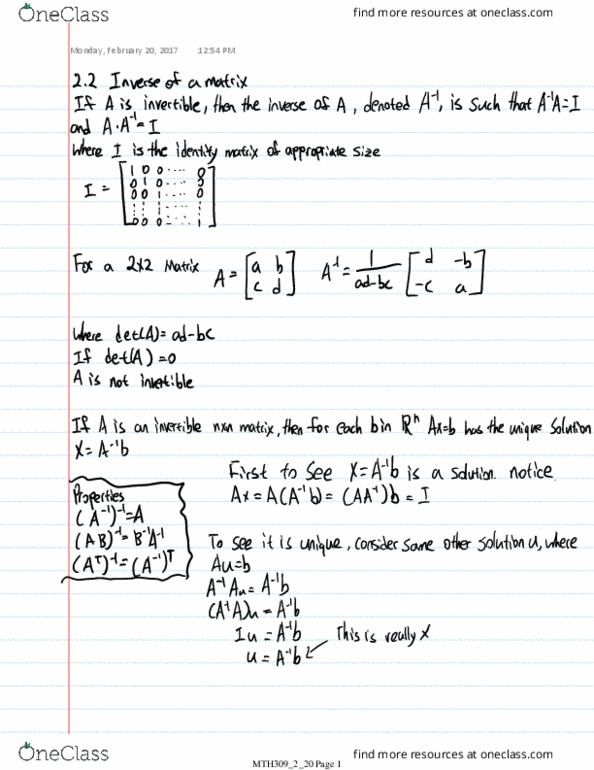 OneClass
find more resources at oneclass.com
Monday, February 20, 2017 12:54 PM
2.2 Inverse of a matrix
If A is invertible, then the inverse of A, denoted A⁻¹, is such that A⁻¹A=I
and A·A⁻¹=I
Where I is the identity matrix of appropriate size
I = [1 0 0 ···· 0
0 1 0 ···· 0
0 0 1 ···· 0
⋮ ⋮ ⋮ ···· ⋮
0 0 0 ···· 1]
For a 2x2 Matrix A = [a b; c d] A⁻¹ = 1/(ad-bc) [d -b; -c a]
Where det(A) = ad-bc
If det(A) = 0
A is not invertible
If A is an invertible nxn matrix, then for each b in Rⁿ Ax=b has the unique solution
X = A⁻¹b
First to see X=A⁻¹b is a solution. notice
Ax = A(A⁻¹b) = (AA⁻¹)b = I
Properties
(A⁻¹)⁻¹=A
(AB)⁻¹=B⁻¹A⁻¹
(Aᵀ)⁻¹=(A⁻¹)ᵀ
To see it is unique, consider some other solution u, where
Au=b
A⁻¹Au = A⁻¹b
(A⁻¹A)u = A⁻¹b
Iu = A⁻¹b
This is really X
u = A⁻¹b
OneClass
MTH309_2_20 Page 1
find more resources at oneclass.com